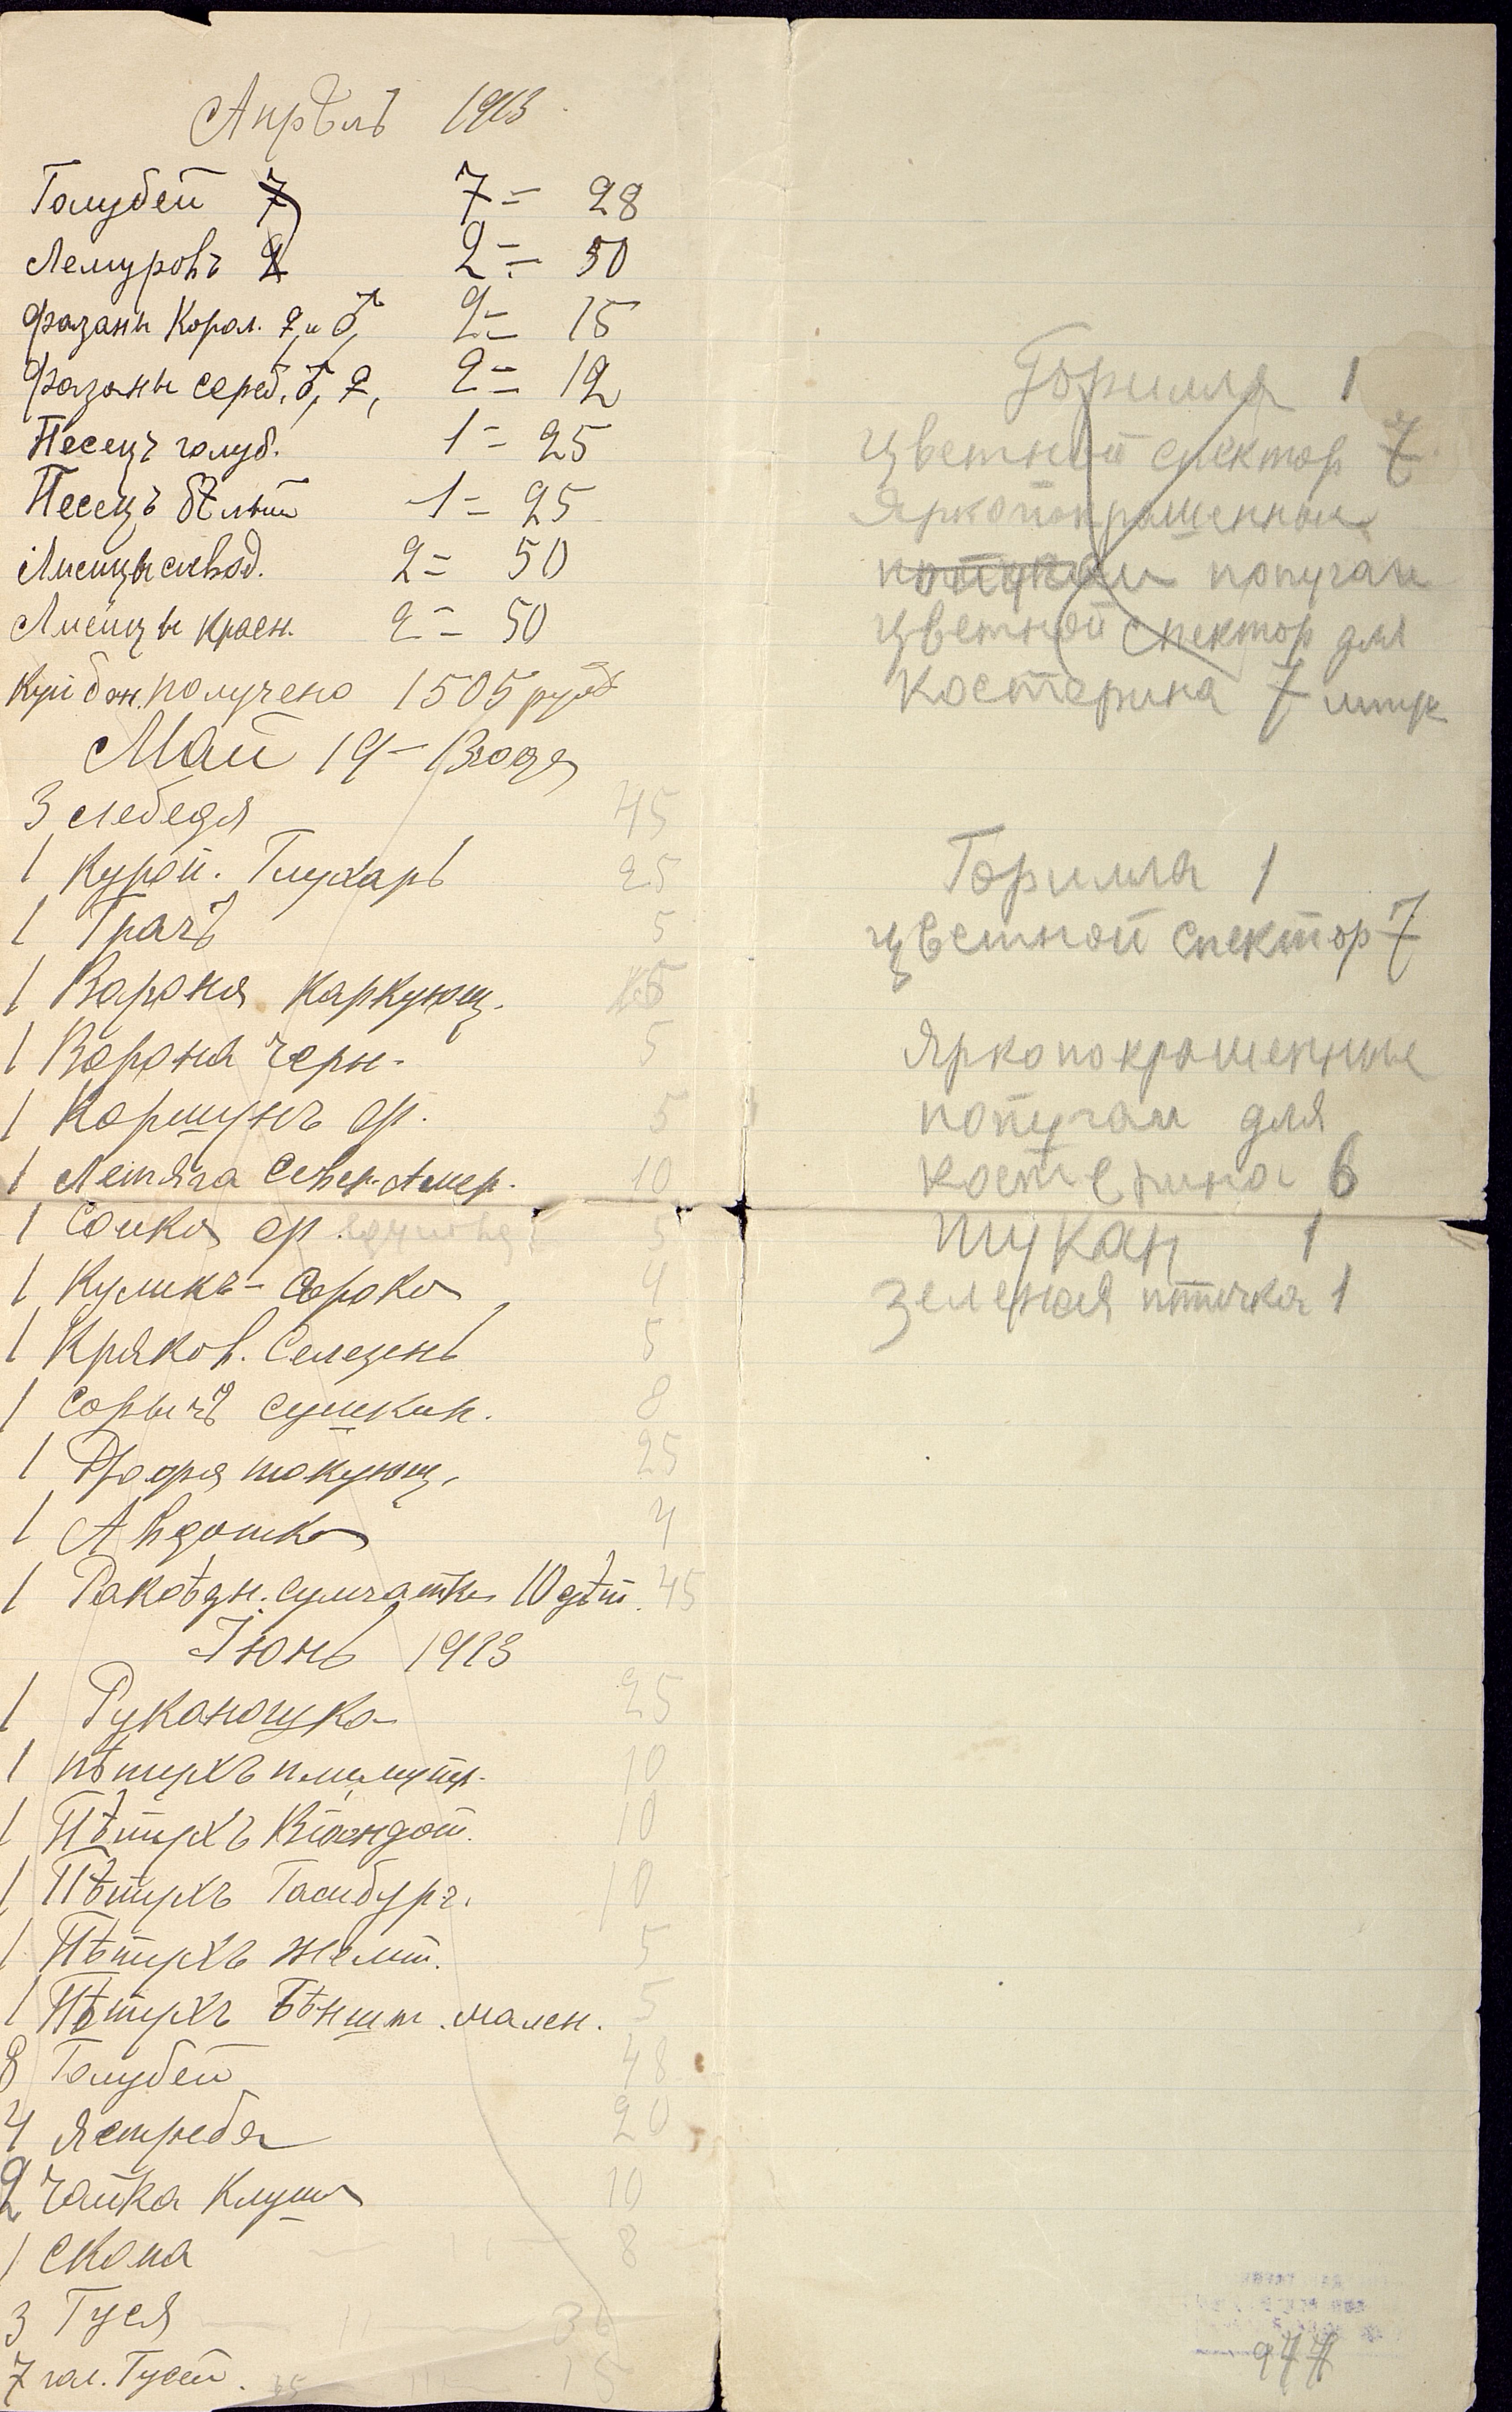 Апрѣль 1913
Голубей 7 7 = 28
Лемуровъ 2 2 = 50
Фазаны Корол. ♀ и ♂, 2 = 15
Фазаны сереб. ♂, ♀, 2 = 12
Песецъ голуб. 1 = 25
Песецъ бѣлый 1 = 25
Лисицы 2 = 50
Лисицы красн. 2 = 50
получено 1505 руб
Май 19-13 года
3 лебедя 45
1 Глухарь 25
1 Грачъ 5
1 Варона каркующ. 5
1 Варона черн. 5
1 Коршунъ ср. 5
1 Летяга Север. Амер. 10
1 Сойка ср. 5
1 Куликъ-Сорока 4
1 Кряков. Селезень 5
1 Сарычъ 8
1 Дрофа токующ. 25
1 Авдотка 4
1 Ракоѣдн. сумчатка 10 дѣт. 45
Іюнь 1913
1 Руканожка 25
1 пѣтухъ плимутр. 10
1 Пѣтухъ Віандот. 10
1 Пѣтухъ Гамбург. 10
1 Пѣтухъ желт. 5
1 Пѣтухъ мален. 5
8 Голубей 48
4 Ястреба 20
2 Чайка Клуша 10
1 Скопа 8
3 Гуся
7 гол. Гусей. 15
Горилла 1
цветной спектор 7
Яркопокрашенные
попугаи попугаи
цветной спектор для
Костерина 7 штук
Гориллы 1
цветной спектор 7
яркопокрашенные
попугаи для
костерина 6
тукан 1
зеленая птичка 1
977